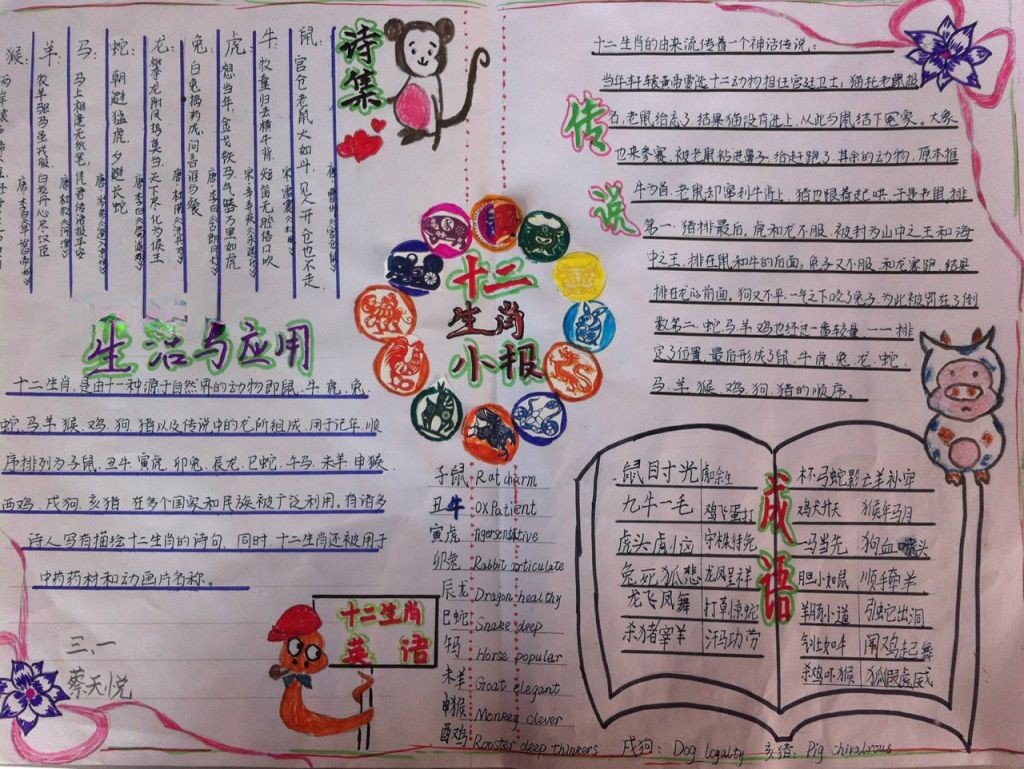 诗集
鼠:
官仓老鼠大如斗,见人开仓也不走
牛:
牧童归去横牛背,短笛无腔信口吹
虎:
想当年,金戈铁马,气吞万里如虎
兔:
白兔捣药成,问言谁与餐
龙:
攀龙附凤势莫当,天下尽化为侯王
蛇:
朝避猛虎,夕避长蛇
马:
马上相逢无纸笔,凭君传语报平安
羊:
牧羊驱马虽戎服,白发丹心尽汉臣
猴:
两岸猿
生活与应用
十二生肖,是由十一种源于自然界的动物即鼠、牛、虎、兔、
蛇、马、羊、猴、鸡、狗、猪以及传说中的龙所组成,用于记年,顺
序排列为子鼠、丑牛、寅虎、卯兔、辰龙、巳蛇、午马、未羊、申猴、
酉鸡、戌狗、亥猪。在多个国家和民族被广泛利用,有诸多
诗人写有描绘十二生肖的诗句,同时,十二生肖还被用于
中药药材和动画片名称。
三、一
蔡天悦
十二生肖
英语
十二
生肖
小报
子鼠 Rat charm
丑牛 ox Patient
寅虎 Tigersensitive
卯兔 Rabbit articulate
辰龙 Dragon healthy
巳蛇 Snake deep
午马 Horse popular
未羊 Goat elegant
申猴 Monkey clever
酉鸡 Rooster deep thinkers 戌狗: Dog loyalty 亥猪: Pig chivalrous
传说
十二生肖的由来流传着一个神话传说:
当年轩辕黄帝要选十二动物担任宫廷卫士,猫托老鼠报
名,老鼠给忘了,结果猫没有选上,从此与鼠结下冤家。大象
也来参赛,被老鼠钻进鼻子,给赶跑了,其余的动物,原本推
牛为首,老鼠却窜到牛背上,猪也跟着起哄,于是老鼠排
第一,猪排最后,虎和龙不服,被封为山中之王和海
中之王,排在鼠和牛的后面。兔子又不服,和龙赛跑,结果
排在龙的前面,狗又不平,一气之下咬了兔子,为此被罚在了倒
数第二,蛇、马、羊、鸡也经过一番较量,一一排
定了位置,最后形成了鼠、牛、虎、兔、龙、蛇、
马、羊、猴、鸡、狗、猪的顺序。
成语
鼠目寸光 虎口余生 杯弓蛇影 亡羊补牢
九牛一毛 鸡飞蛋打 鸡犬升天 猴年马月
虎头虎脑 守株待兔 一马当先 狗血喷头
兔死狐悲 龙凤呈祥 胆小如鼠 顺手牵羊
龙飞凤舞 打草惊蛇 羊肠小道 引蛇出洞
杀猪宰羊 汗马功劳 气壮如牛 闻鸡起舞
杀鸡吓猴 狐假虎威